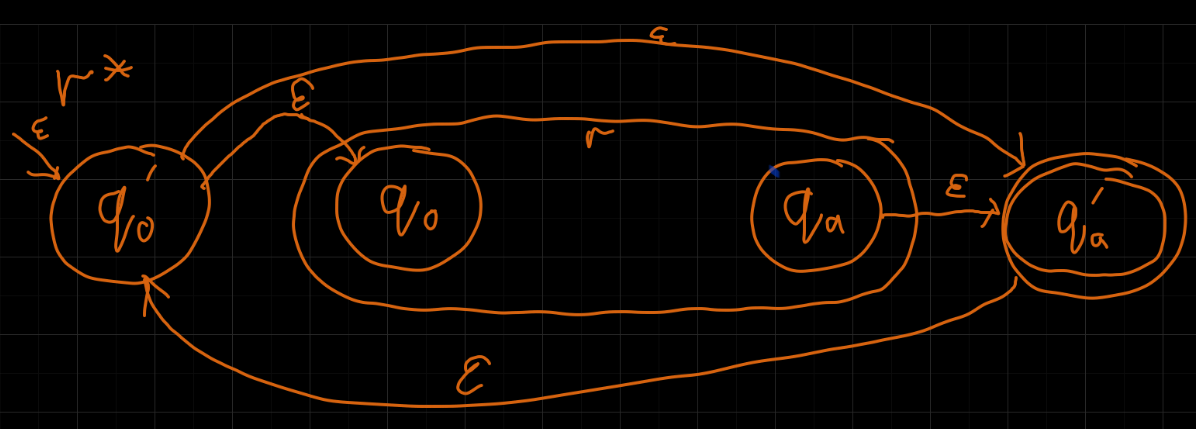 r*
ε
ε
ε
r
q₀'
q₀
qₐ
ε
qₐ'
ε